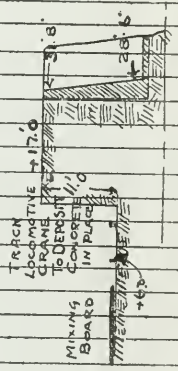 TRACK
LOCOMOTIVE
CRANE
TO DEPOSIT
CONCRETE
IN PLACE
MIXING
BOARD
+17.0
11.0
+6.0